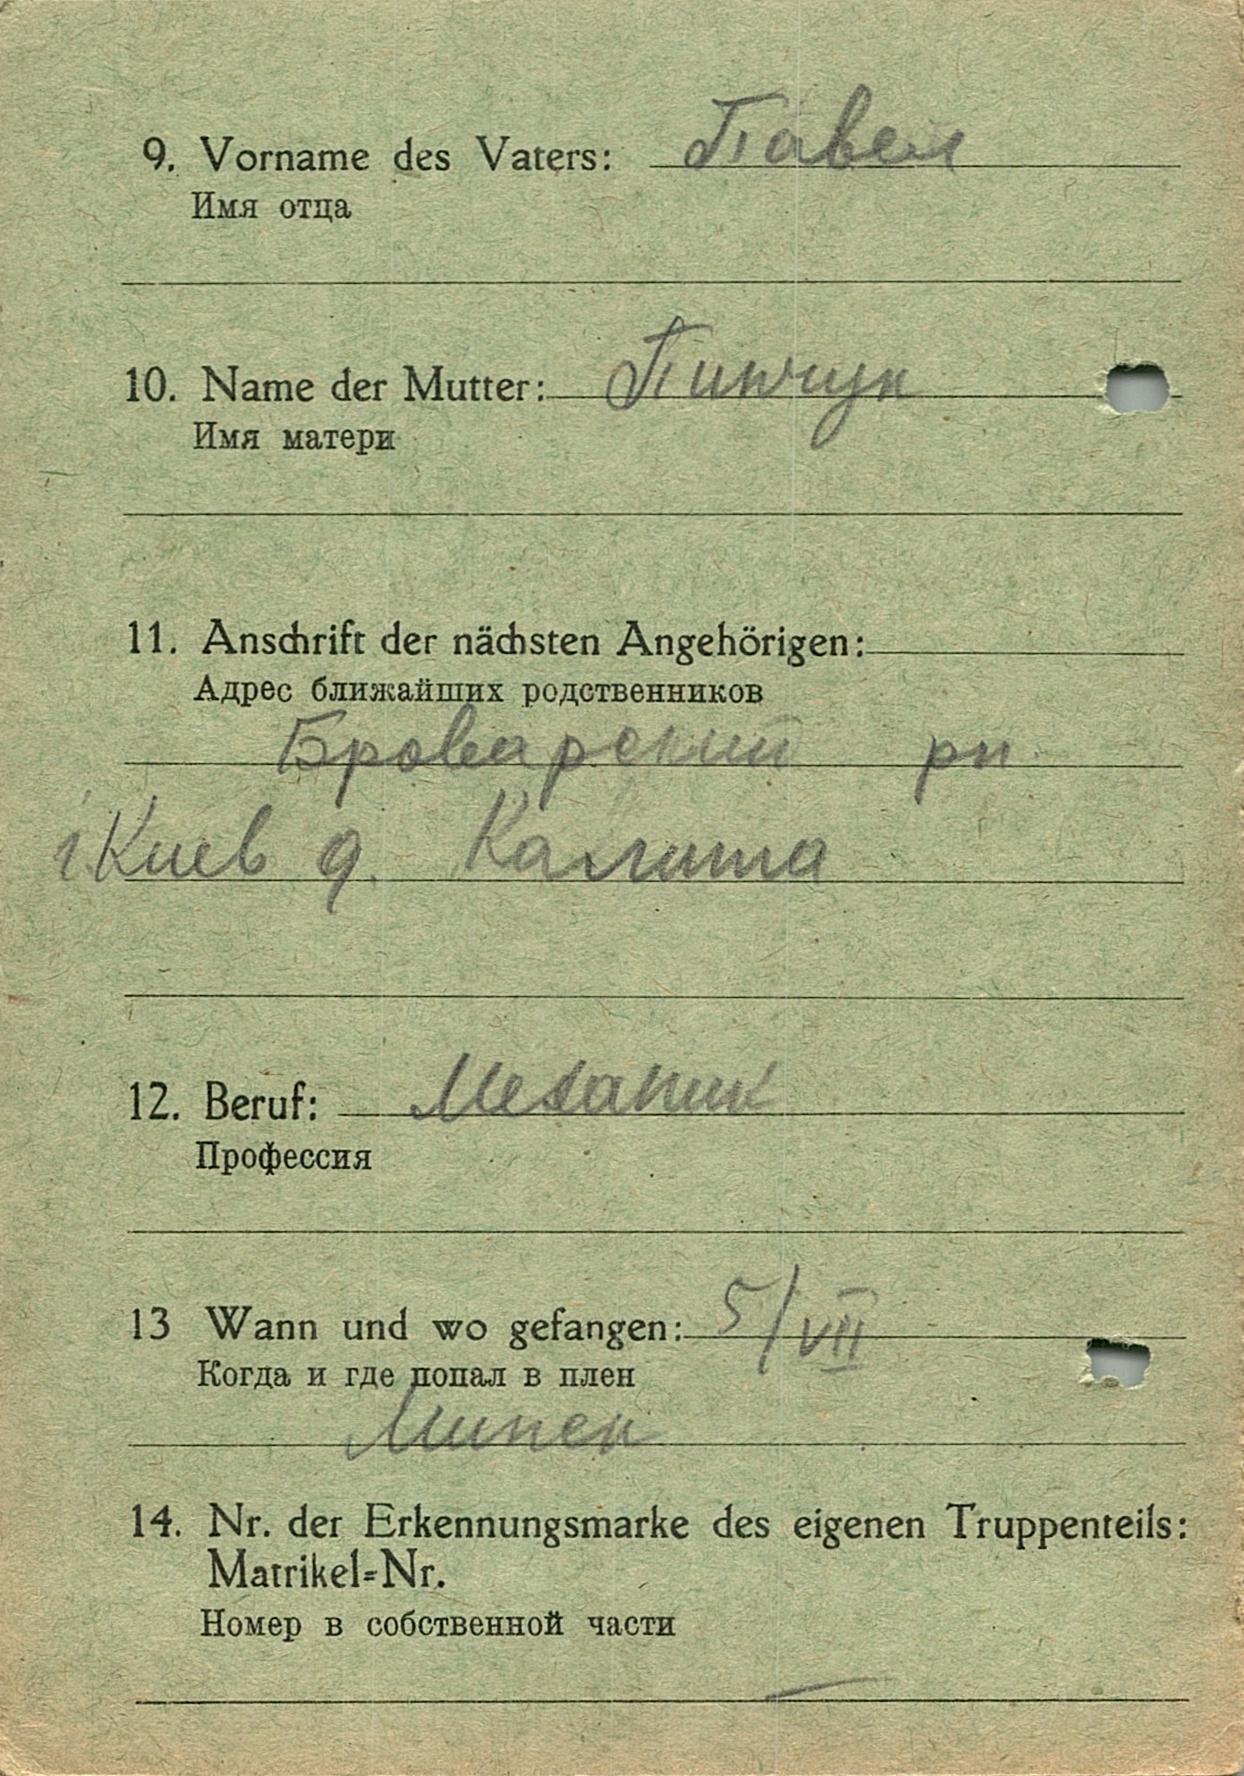 9. Vorname des Vaters: Павел
Имя отца
10. Name der Mutter: Пинчук
Имя матери
11. Anschrift der nächsten Angehörigen:
Адрес ближайших родственников
Броварский рн.
г Киев д. Калита
12. Beruf: Механик
Профессия
13 Wann und wo gefangen: 5/VII
Когда и где попал в плен
Минск
14. Nr. der Erkennungsmarke des eigenen Truppenteils:
Matrikel=Nr.
Номер в собственной части
—